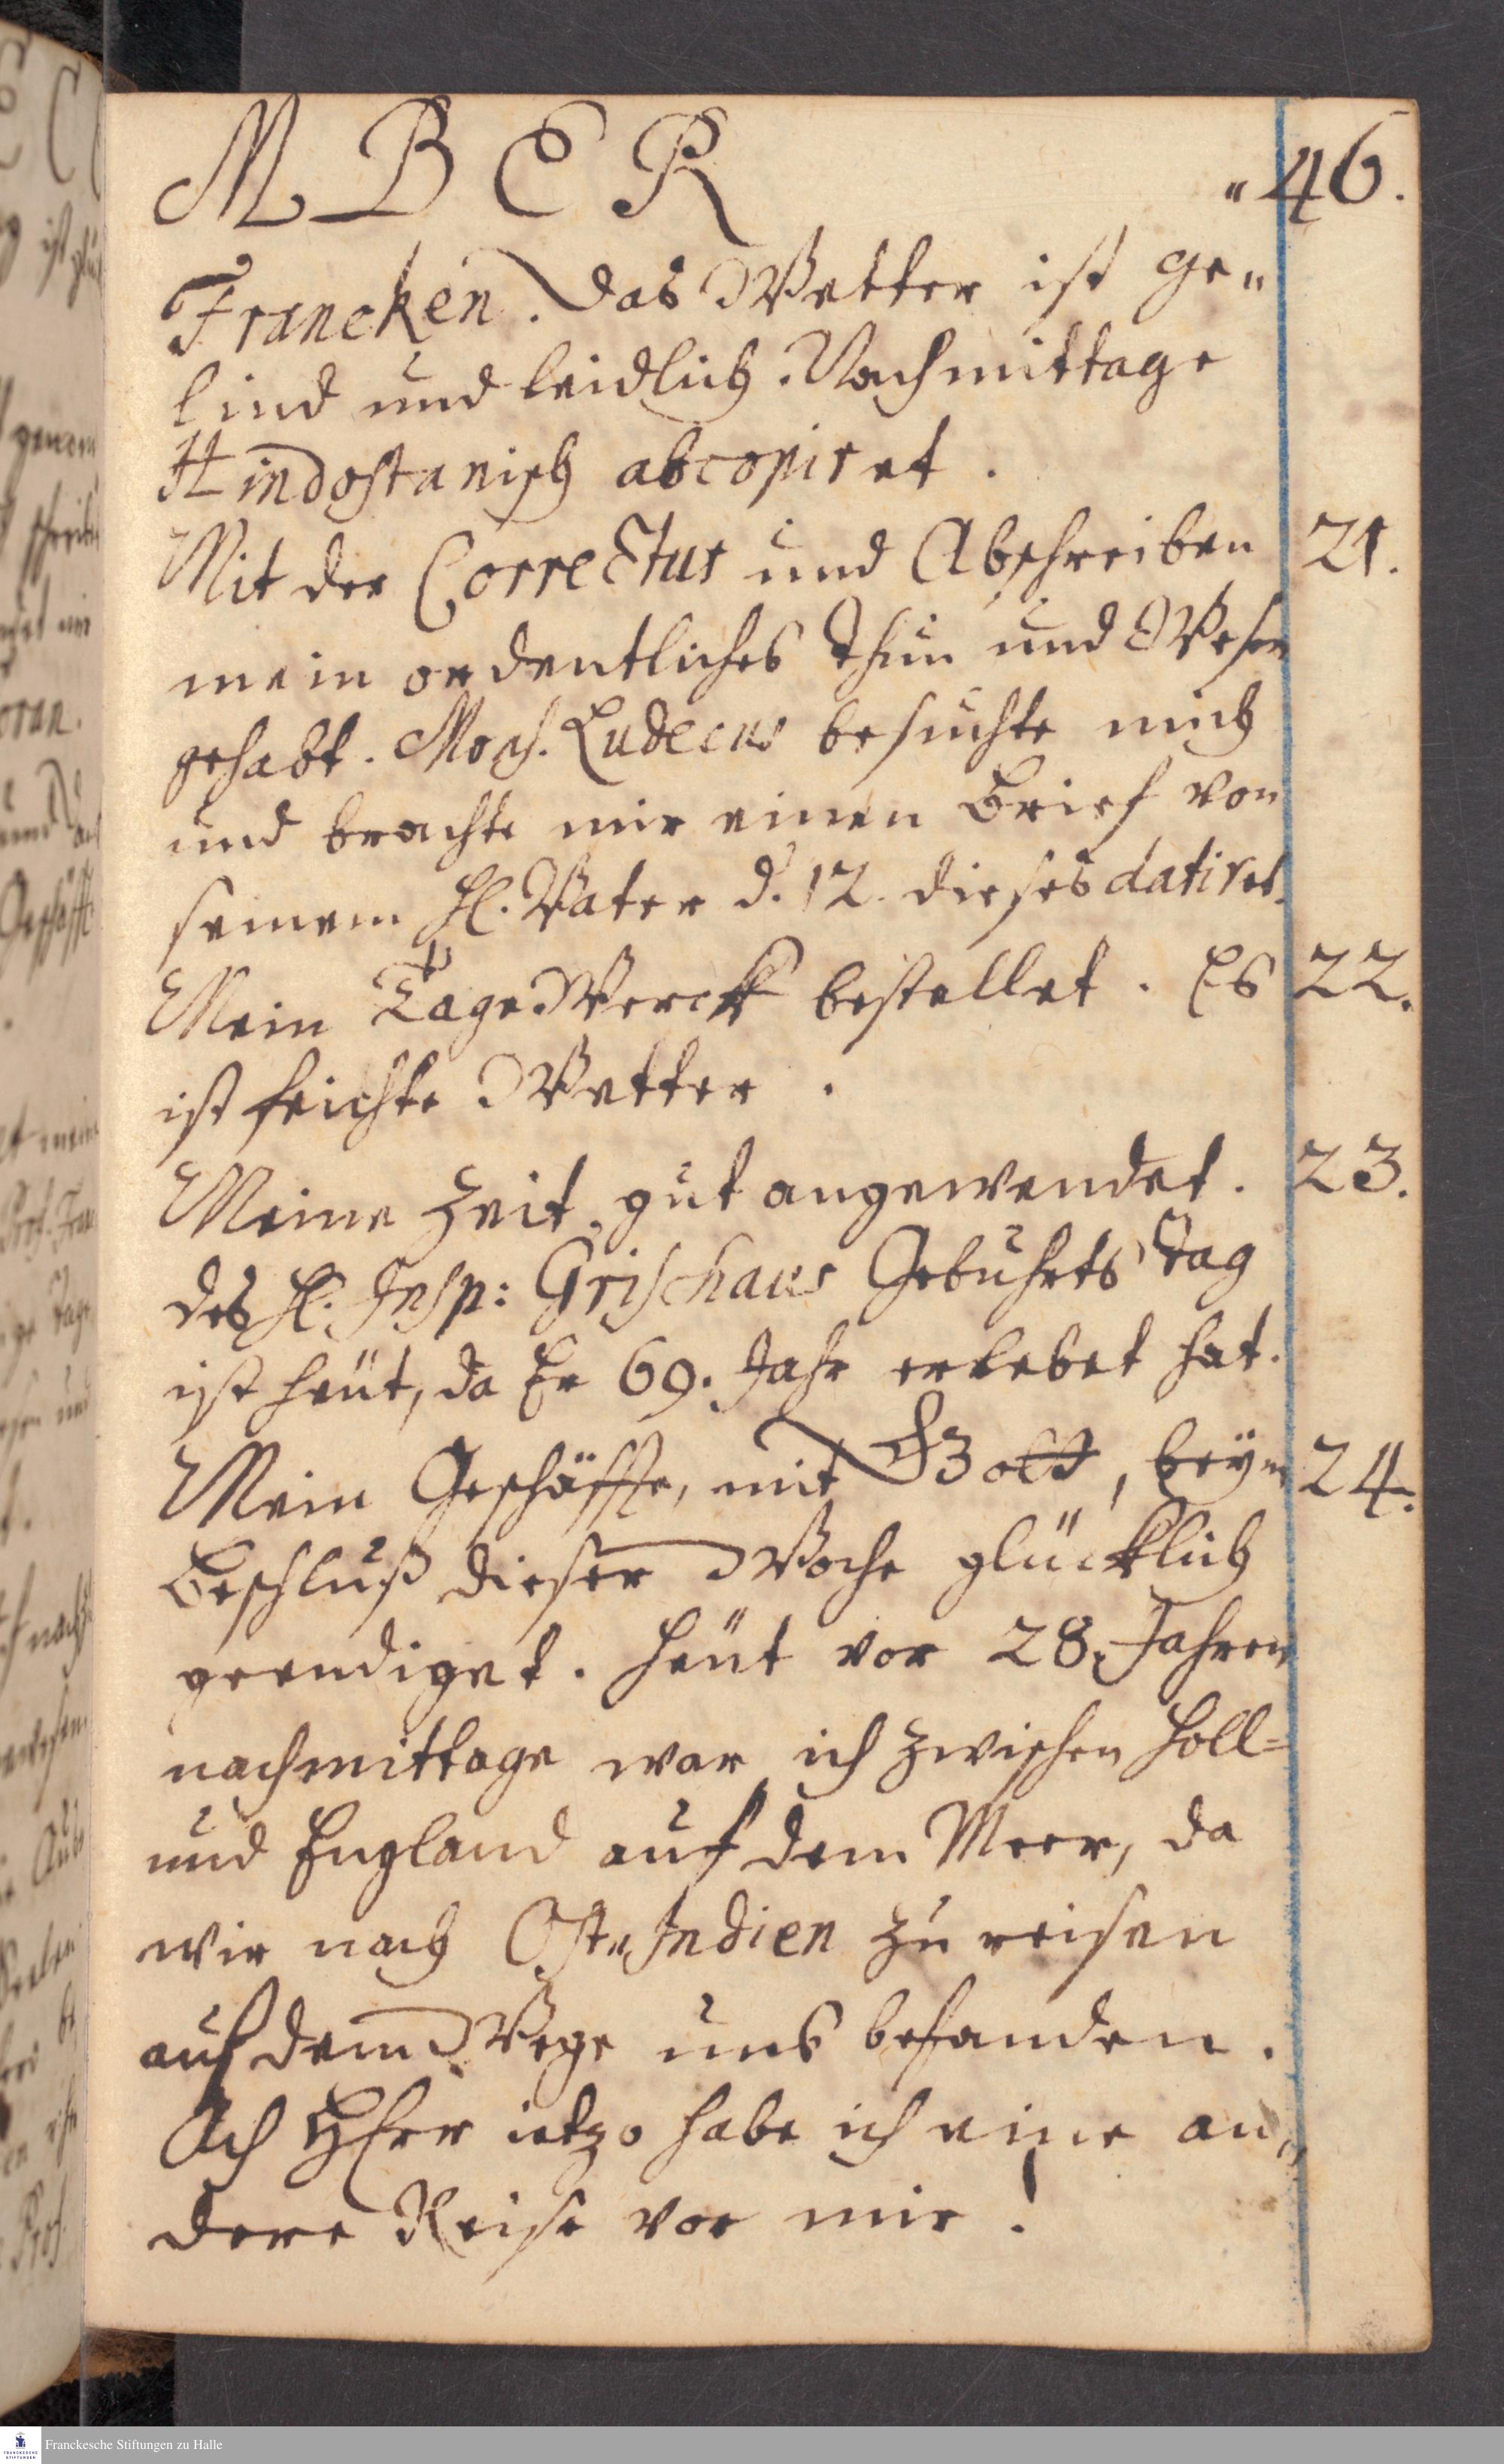 MBER
"46.
Francken. Das Wetter ist ge„
lind und leidlich. Nachmittage
Hindostanisch abcopiret.
Mit der Correctur und Abschreiben 21.
mein ordentliches Thun und Wesen
gehabt. Mons. Ludecus besuchte mich
und brachte mir einen Brief von
seinem H. Vater d. 12. dieses datiret.
Mein TageWerck bestellet. Es 22.
ist feuchte Wetter.
Meine Zeit gut angewendet. 23.
des H. Insp: Grischaus Gebuhrts Tag
ist heüt, da Er 69. Jahr erlebet hat.
Mein Geschäffte, mit Gott, beym 24.
Beschluß dieser Woche glücklich
geendiget. Heüt vor 28. Jahren
nachmittage war ich zwischen Holl=
und England auf dem Meer, da
wir nach Ost„Indien zu reisen
auf dem Wege uns befanden.
Ach HErr ietzo habe ich eine an„
dere Reise vor mir!
Franckesche Stiftungen zu Halle